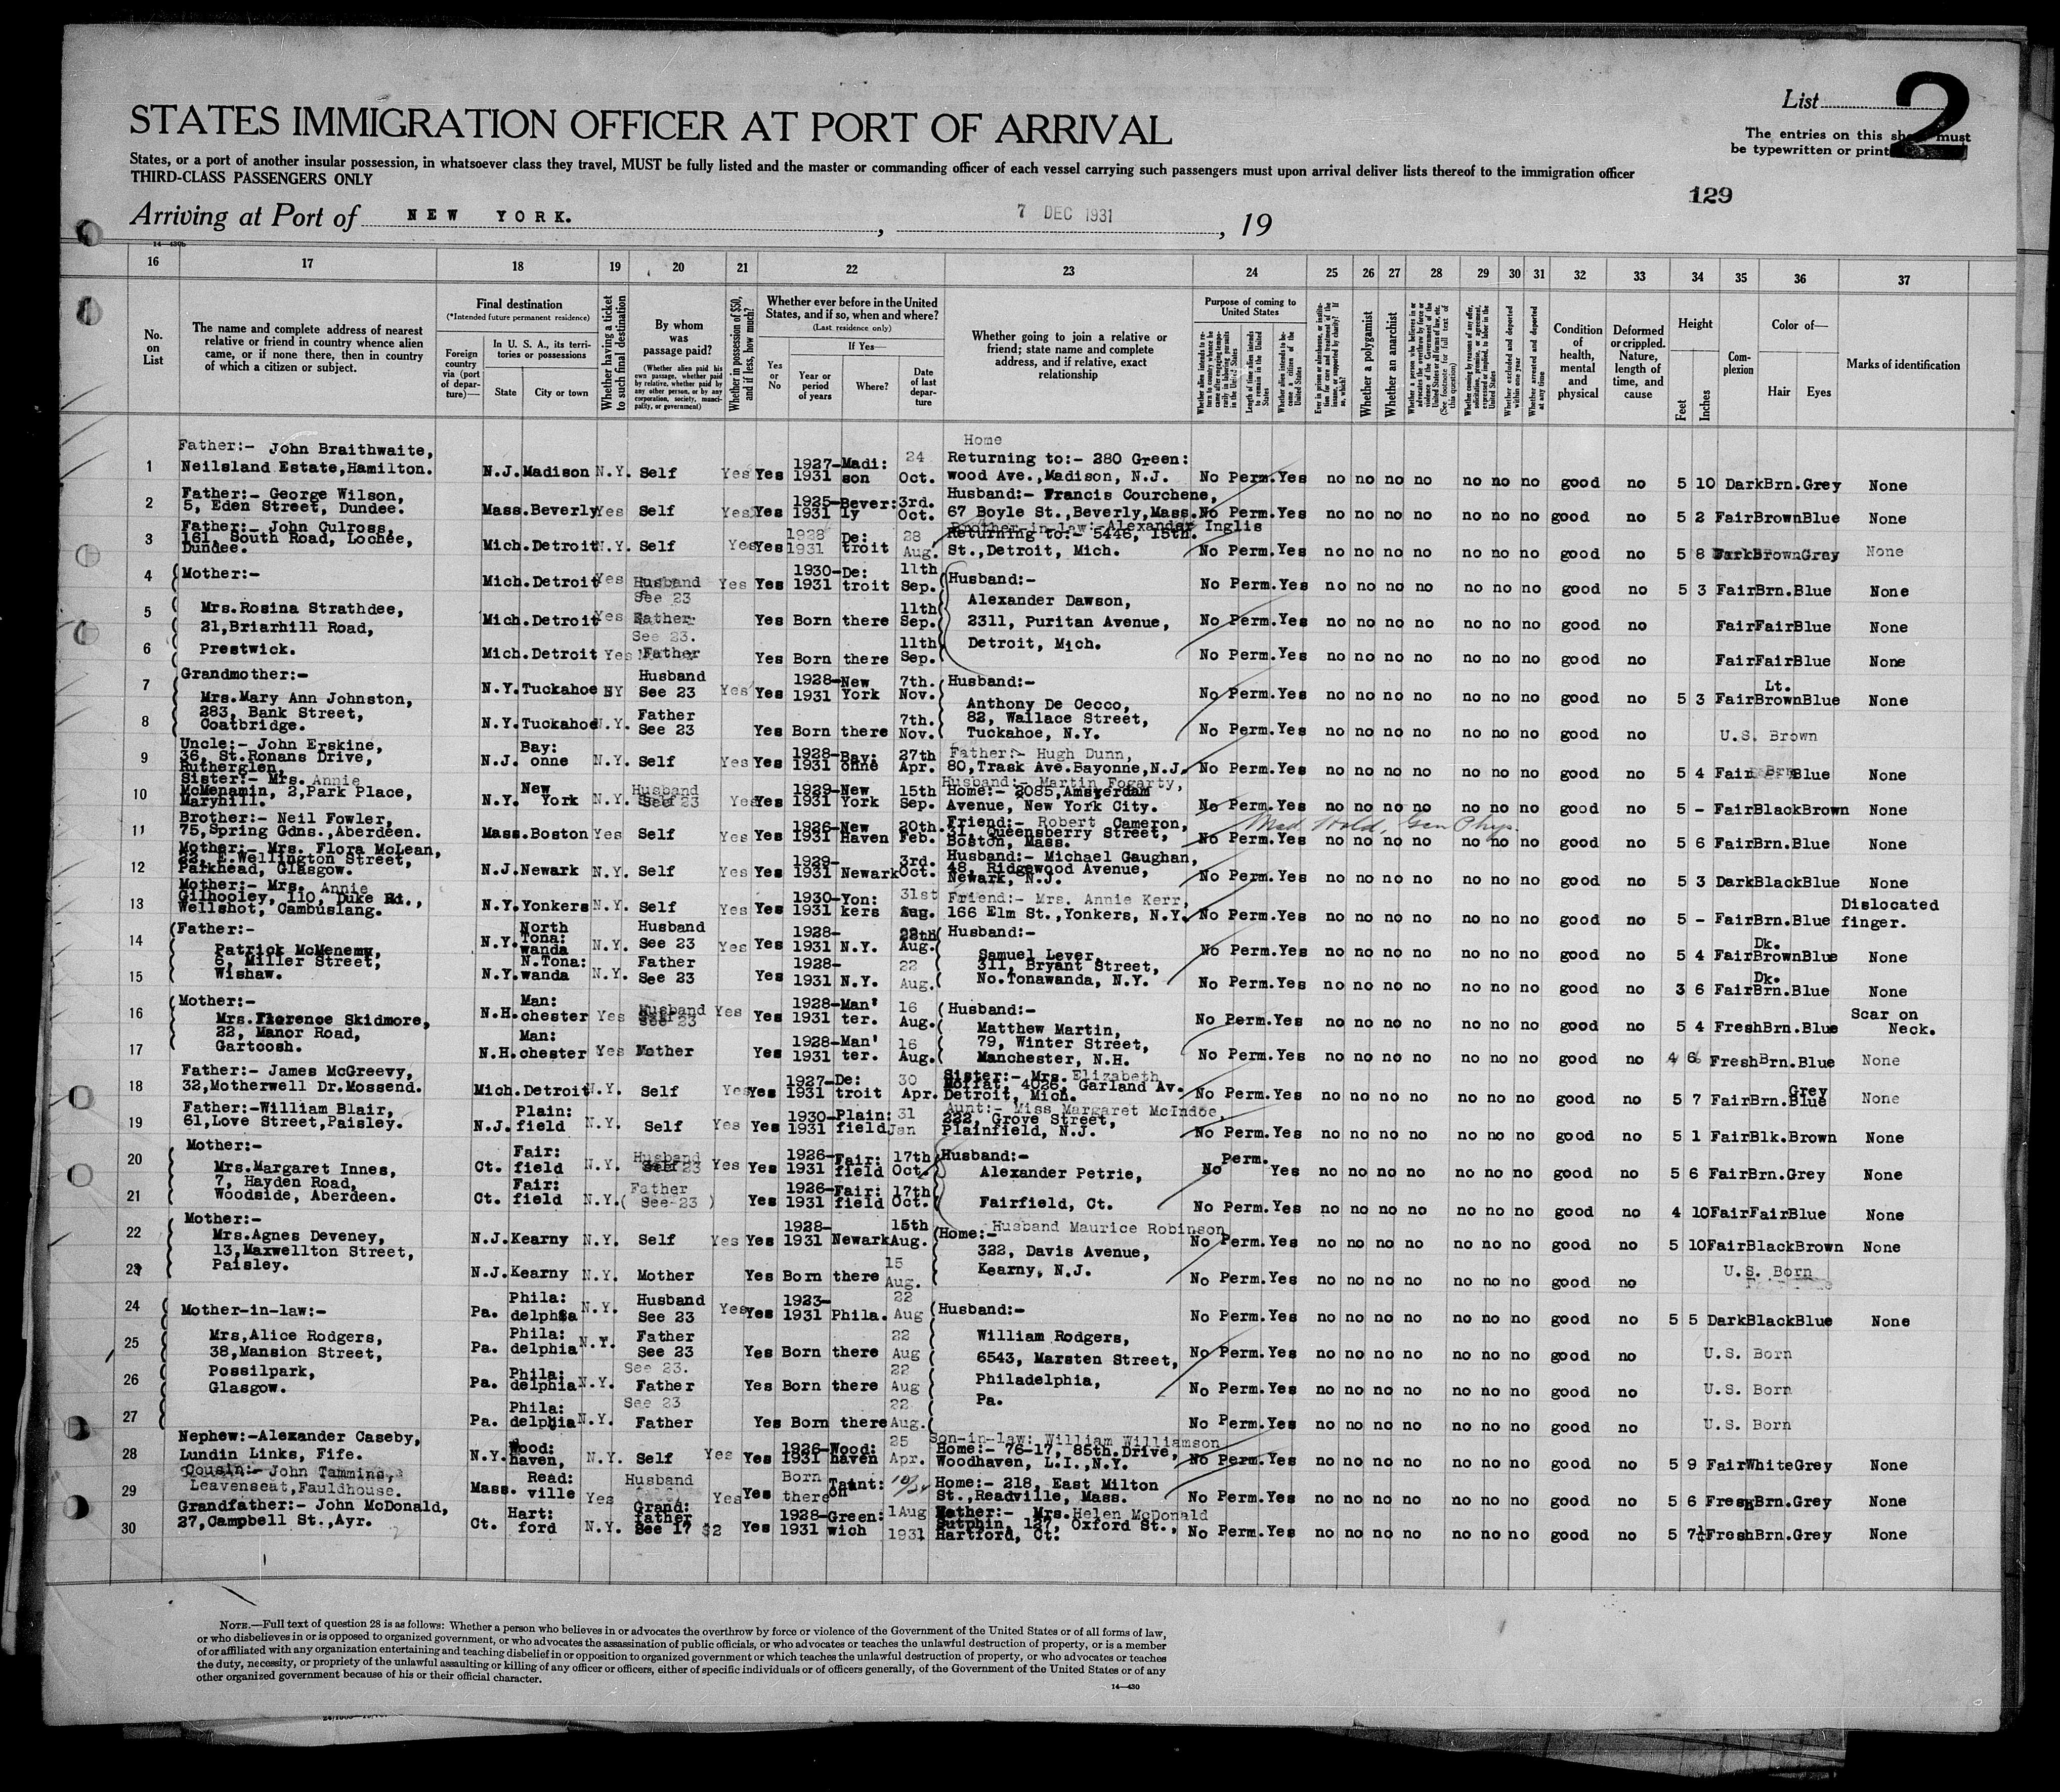 List 2
STATES IMMIGRATION OFFICER AT PORT OF ARRIVAL
The entries on this sheet must
be typewritten or printed
States, or a port of another insular possession, in whatsoever class they travel, MUST be fully listed and the master or commanding officer of each vessel carrying such passengers must upon arrival deliver lists thereof to the immigration officer
THIRD-CLASS PASSENGERS ONLY
129
Arriving at Port of NEW YORK. , 7 DEC 1931 , 19
14—430b
16 17 18 19 20 21 22 23 24 25 26 27 28 29 30 31 32 33 34 35 36 37
No. on List
The name and complete address of nearest relative or friend in country whence alien came, or if none there, then in country of which a citizen or subject.
Final destination
(*Intended future permanent residence)
Foreign country via (port of departure)—
In U. S. A., its territories or possessions
State City or town
Whether having a ticket to such final destination
By whom was passage paid?
(Whether alien paid his own passage, whether paid by relative, whether paid by any other person, or by any corporation, society, municipality, or government)
Whether in possession of $50, and if less, how much?
Whether ever before in the United States, and if so, when and where?
(Last residence only)
Yes or No
If Yes—
Year or period of years
Where?
Date of last departure
Whether going to join a relative or friend; state name and complete address, and if relative, exact relationship
Purpose of coming to United States
Length of time alien intends to remain in the United States
Whether alien intends to become a citizen of the United States
Whether a polygamist
Whether an anarchist
Whether excluded and deported within one year
Whether arrested and deported at any time
Condition of health, mental and physical
Deformed or crippled. Nature, length of time, and cause
Height
Feet Inches
Complexion
Color of—
Hair Eyes
Marks of identification
1 Father:- John Braithwaite,
Neilsland Estate,Hamilton. N.J. Madison N.Y. Self Yes Yes 1927-1931 Madi:son 24 Oct. Home Returning to:- 280 Green:wood Ave.,Madison, N.J. No Perm. Yes no no no no no no no good no 5 10 Dark Brn. Grey None
2 Father:- George Wilson,
5, Eden Street, Dundee. Mass. Beverly Yes Self Yes Yes 1925-1931 Bever:ly 3rd. Oct. Husband:- Francis Courchene, 67 Boyle St.,Beverly,Mass. No Perm. Yes no no no no no no no good no 5 2 Fair Brown Blue None
3 Father:- John Culross,
161, South Road, Lochee,
Dundee. Mich. Detroit N.Y. Self Yes Yes 1928 1931 De:troit 28 Aug. Brother-in-law:- Alexander Inglis Returning to:- 5446, 15th. St.,Detroit, Mich. No Perm. Yes no no no no no no no good no 5 8 Dark Brown Grey None
4 Mother:- Mich. Detroit Yes Husband See 23 Yes Yes 1930-1931 De:troit 11th Sep. Husband:- No Perm. Yes no no no no no no no good no 5 3 Fair Brn. Blue None
5 Mrs.Rosina Strathdee,
21,Briarhill Road, Mich. Detroit Yes Father See 23. Yes Born there 11th Sep. Alexander Dawson, 2311, Puritan Avenue, No Perm. Yes no no no no no no no good no Fair Fair Blue None
6 Prestwick. Mich. Detroit Yes Father Yes Born there 11th Sep. Detroit, Mich. No Perm. Yes no no no no no no no good no Fair Fair Blue None
7 Grandmother:-
Mrs.Mary Ann Johnston, N.Y. Tuckahoe NY Husband See 23 Yes Yes 1928-1931 New York 7th. Nov. Husband:- Anthony De Cecco, No Perm. Yes no no no no no no no good no 5 3 Fair Lt. Brown Blue None
8 283, Bank Street,
Coatbridge. N.Y. Tuckahoe N.Y. Father See 23 Yes Born there 7th. Nov. 82, Wallace Street, Tuckahoe, N.Y. No Perm. Yes no no no no no no no good no U.S. Brown
9 Uncle:- John Erskine,
36, St.Ronans Drive,
Rutherglen, N.J. Bay:onne N.Y. Self Yes Yes 1928-1931 Bay:onne 27th Apr. Father:- Hugh Dunn, 80,Trask Ave.Bayonne,N.J. No Perm. Yes no no no no no no no good no 5 4 Fair Brn Blue None
10 Sister:- Mrs. Annie
McMenamin, 2,Park Place,
Maryhill. N.Y. New York N.Y. Husband See 23 Yes Yes 1929-1931 New York 15th Sep. Husband:- Martin Fogarty, Home:- 2085,Amsterdam Avenue, New York City. No Perm. Yes no no no no no no no good no 5 - Fair Black Brown None
11 Brother:- Neil Fowler,
75,Spring Gdns.,Aberdeen. Mass. Boston Yes Self Yes Yes 1926-1931 New Haven 20th. Feb. Friend:- Robert Cameron, 31, Queensberry Street, Boston, Mass. Med. Hold, Gen Phys. No Perm. Yes no no no no no no no good no 5 6 Fair Brn. Blue None
12 Mother:- Mrs. Flora McLean,
22, E.Wellington Street,
Parkhead, Glasgow. N.J. Newark N.Y. Self Yes Yes 1929-1931 Newark 3rd. Oct. Husband:- Michael Gaughan, 48, Ridgewood Avenue, Newark, N.J. No Perm. Yes no no no no no no no good no 5 3 Dark Black Blue None
13 Mother:- Mrs. Annie
Gilhooley, 110, Duke Rd.,
Wellshot, Cambuslang. N.Y. Yonkers N.Y. Self Yes Yes 1930-1931 Yon:kers 31st Aug. Friend:- Mrs. Annie Kerr, 166 Elm St.,Yonkers, N.Y. No Perm. Yes no no no no no no no good no 5 - Fair Brn. Blue Dislocated finger.
14 Father:-
Patrick McMenemy, N.Y. North Tona:wanda N.Y. Husband See 23 Yes Yes 1928-1931 N.Y. Aug. Husband:- Samuel Lever, No Perm. Yes no no no no no no no good no 5 4 Fair Dk. Brown Blue None
15 6, Miller Street,
Wishaw. N.Y. N.Tona:wanda N.Y. Father See 23 Yes 1928-1931 N.Y. 22 Aug. 311, Bryant Street, No.Tonawanda, N.Y. No Perm. Yes no no no no no no no good no 3 6 Fair Dk. Brn. Blue None
16 Mother:-
Mrs.Florence Skidmore, N.H. Man:chester Yes Husband See 23 Yes Yes 1928-1931 Man'ter. 16 Aug. Husband:- Matthew Martin, No Perm. Yes no no no no no no no good no 5 4 Fresh Brn. Blue Scar on Neck.
17 22, Manor Road,
Gartcosh. N.H. Man:chester Yes Mother Yes 1928-1931 Man'ter. 16 Aug. 79, Winter Street, Manchester, N.H. No Perm. Yes no no no no no no no good no 4 6 Fresh Brn. Blue None
18 Father:- James McGreevy,
32,Motherwell Dr.Mossend. Mich. Detroit N.Y. Self Yes Yes 1927-1931 De:troit 30 Apr. Sister:- Mrs. Elizabeth Moffat, 4026, Garland Av. Detroit, Mich. No Perm. Yes no no no no no no no good no 5 7 Fair Brn. Grey Blue None
19 Father:-William Blair,
61,Love Street,Paisley. N.J. Plain:field N.Y. Self Yes Yes 1930-1931 Plain:field 31 Jan Aunt:- Miss Margaret McIndoe, 222, Grove Street, Plainfield, N.J. No Perm. Yes no no no no no no no good no 5 1 Fair Blk. Brown None
20 Mother:-
Mrs.Margaret Innes, Ct. Fair:field N.Y. Husband See 23 Yes Yes 1926-1931 Fair:field 17th Oct. Husband:- Alexander Petrie, No Perm. Yes no no no no no no no good no 5 6 Fair Brn. Grey None
21 7, Hayden Road,
Woodside, Aberdeen. Ct. Fair:field N.Y. (Father See 23) Yes 1926-1931 Fair:field 17th Oct. Fairfield, Ct. No Perm. Yes no no no no no no no good no 4 10 Fair Fair Blue None
22 Mother:-
Mrs.Agnes Deveney, N.J. Kearny N.Y. Self Yes Yes 1928-1931 Newark 15th Aug. Husband Maurice Robinson Home:- 322, Davis Avenue, No Perm. Yes no no no no no no no good no 5 10 Fair Black Brown None
23 13,Maxwellton Street,
Paisley. N.J. Kearny N.Y. Mother Yes Born there 15 Aug. Kearny, N.J. No Perm. Yes no no no no no no no good no U.S. Born
24 Mother-in-law:- Pa. Phila:delphia N.Y. Husband See 23 Yes Yes 1923-1931 Phila. 22 Aug Husband:- No Perm. Yes no no no no no no no good no 5 5 Dark Black Blue None
25 Mrs,Alice Rodgers,
38,Mansion Street, Pa. Phila:delphia N.Y. Father See 23 Yes Born there 22 Aug William Rodgers, 6543, Marsten Street, No Perm. Yes no no no no no no no good no U.S. Born
26 Possilpark,
Glasgow. Pa. Phila:delphia N.Y. See 23. Father Yes Born there 22 Aug Philadelphia, Pa. No Perm. Yes no no no no no no no good no U.S. Born
27 Pa. Phila:delphia N.Y. See 23 Father Yes Born there 22 Aug. No Perm. Yes no no no no no no no good no U.S. Born
28 Nephew:-Alexander Caseby,
Lundin Links, Fife. N.Y. Wood:haven, N.Y. Self Yes Yes 1926-1931 Wood:haven 25 Apr. Son-in-law: William Williamson Home:- 76-17, 85th.Drive, Woodhaven, L.I.,N.Y. No Perm. Yes no no no no no no no good no 5 9 Fair White Grey None
29 Cousin:- John Tammins,
Leavenseat,Fauldhouse. Mass. Read:ville Yes Husband Yes Yes Born there Taint:on Home:- 218, East Milton St.,Readville, Mass. No Perm. Yes no no no no no no no good no 5 6 Fresh Brn. Grey None
30 Grandfather:- John McDonald,
27,Campbell St.,Ayr. Ct. Hart:ford N.Y. Grand:father See 17 $2 Yes 1928-1931 Green:wich 1 Aug 1931 Mother:- Mrs. Helen McDonald Sutphin, 127, Oxford St., Hartford, Ct. No Perm. Yes no no no no no no no good no 5 7½ Fresh Brn. Grey None
NOTE.—Full text of question 28 is as follows: Whether a person who believes in or advocates the overthrow by force or violence of the Government of the United States or of all forms of law,
or who disbelieves in or is opposed to organized government, or who advocates the assassination of public officials, or who advocates or teaches the unlawful destruction of property, or is a member
of or affiliated with any organization entertaining and teaching disbelief in or opposition to organized government or which teaches the unlawful destruction of property, or who advocates or teaches
the duty, necessity, or propriety of the unlawful assaulting or killing of any officer or officers, either of specific individuals or of officers generally, of the Government of the United States or of any
other organized government because of his or their official character.
14—430